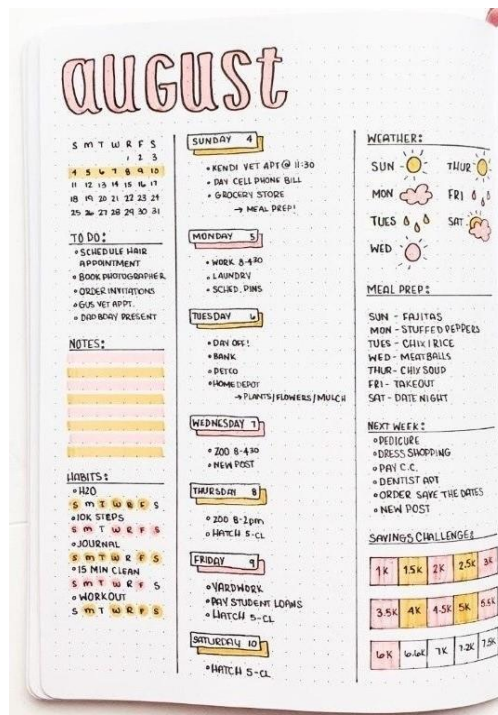 august
S M T W R F S
1 2 3
4 5 6 7 8 9 10
11 12 13 14 15 16 17
18 19 20 21 22 23 24
25 26 27 28 29 30 31
TO DO:
• SCHEDULE HAIR
APPOINTMENT
• BOOK PHOTOGRAPHER
• ORDER INVITATIONS
• GUS VET APPT.
• DAD BDAY PRESENT
NOTES:
HABITS:
• H2O
S M T W R F S
• 10K STEPS
S M T W R F S
• JOURNAL
S M T W R F S
• 15 MIN CLEAN
S M T W R F S
• WORKOUT
S M T W R F S
SUNDAY 4
• KENDI VET APT @ 11:30
• PAY CELL PHONE BILL
• GROCERY STORE
→ MEAL PREP!
MONDAY 5
• WORK 8-430
• LAUNDRY
• SCHED. PINS
TUESDAY 6
• DAY OFF!
• BANK
• PETCO
• HOME DEPOT
→ PLANTS/FLOWERS/MULCH
WEDNESDAY 7
• ZOO 8-430
• NEW POST
THURSDAY 8
• ZOO 8-2pm
• HATCH 5-CL
FRIDAY 9
• YARDWORK
• PAY STUDENT LOANS
• HATCH 5-CL
SATURDAY 10
• HATCH 5-CL
WEATHER:
SUN THUR
MON FRI
TUES SAT
WED
MEAL PREP:
SUN - FAJITAS
MON - STUFFED PEPPERS
TUES - CHIX & RICE
WED - MEATBALLS
THUR - CHIX SOUP
FRI - TAKEOUT
SAT - DATE NIGHT
NEXT WEEK:
• PEDICURE
• DRESS SHOPPING
• PAY C.C.
• DENTIST APT
• ORDER SAVE THE DATES
• NEW POST
SAVINGS CHALLENGE:
1K 1.5K 2K 2.5K 3K
3.5K 4K 4.5K 5K 5.5K
6K 6.6K 7K 7.2K 7.5K